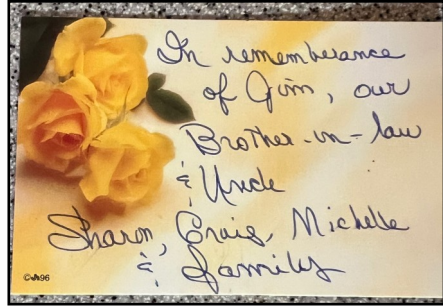 In rememberance
of Jim, our
Brother-in-law
& Uncle
Sharon, Craig, Michelle
& family